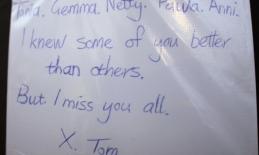 Gemma. Netty. Anni.
I knew some of you better
than others.
But I miss you all.
X. Tom